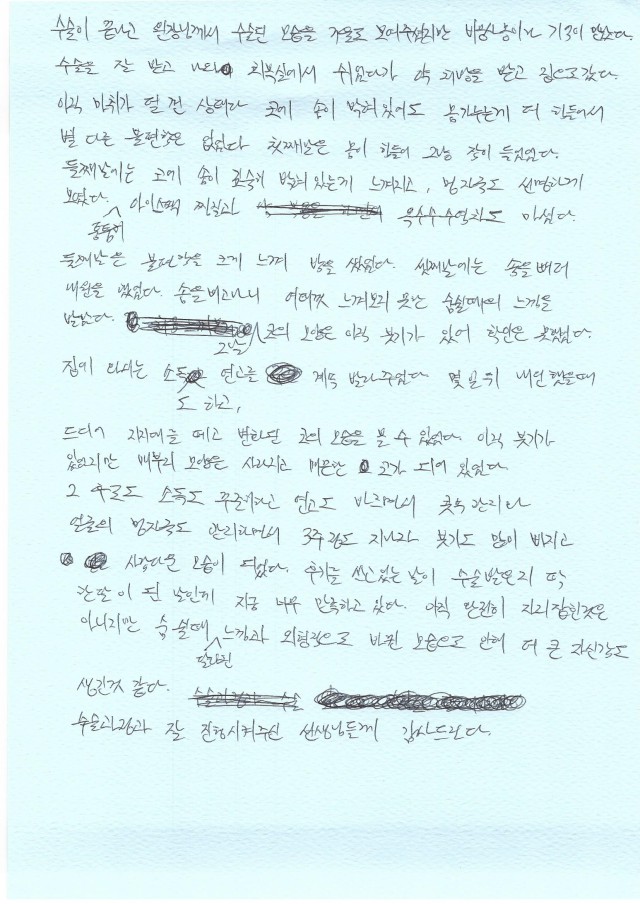 수술이 끝나고 원장님께서 수술된 모습을 거울로 보여주셨지만 비몽사몽이라 기억이 없었다.
수술을 잘 받고 나와 회복실에서 쉬었다가 약 처방을 받고 집으로 갔다.
아직 마취가 덜 깬 상태라 코에 솜이 박혀있어도 몸가누는게 더 힘들어서
별 다른 불편함은 없었다 첫째날은 몸이 힘들어 그냥 잠이 들었었다.
둘째날에는 코에 솜이 깊숙히 박혀 있는게 느껴지고, 멍자국도 선명하게
보였다. 아이스팩 찜질과 옥수수수염차도 마셨다.
퉁퉁하게
둘째날은 불편함을 크게 느껴 밤을 샜었다. 셋째날에는 솜을 빼러
내원을 했었다. 솜을 빼고나니 여태껏 느껴보지 못한 숨쉴때의 느낌을
받았다. 코의 모양은 아직 붓기가 있어 확인은 못했었다.
그날
집에 와서는 소독 연고를 계속 발라주었다 몇일 뒤 내원했을때
도 하고,
드디어 지지대를 떼고 변화된 코의 모습을 볼 수 있었다. 아직 붓기가
있었지만 매부리 모양은 사라지고 매끈한 코가 되어 있었다.
그 후로도 소독도 꾸준히하고 연고도 바르면서 콧속 관리와
얼굴의 멍자국도 관리하면서 3주정도 지나자 붓기도 많이 빠지고
사람다운 모습이 되었다. 후기를 쓰고있는 날이 수술받은지 딱
한달이 된 날인데 지금 너무 만족하고 있다. 아직 완전히 자리잡힌것은
아니지만 숨 쉴때 느낌과 외형적으로 바뀐 모습으로 인해 더 큰 자신감도
달라진
생긴것 같다.
수술과정과 잘 진행시켜주신 선생님들께 감사드린다.